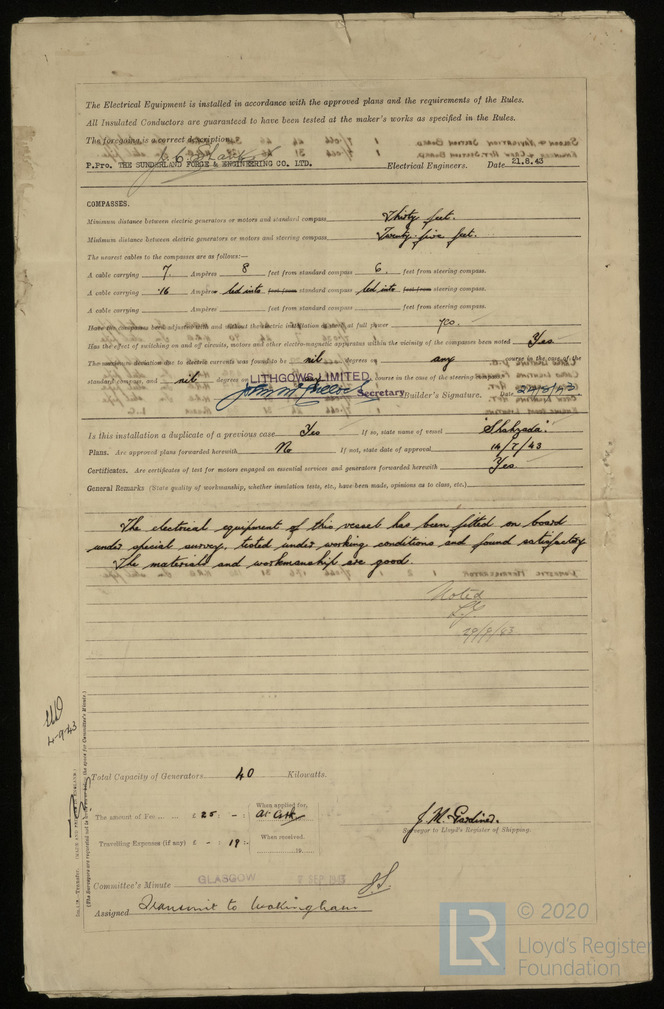 The Electrical Equipment is installed in accordance with the approved plans and the requirements of the Rules.
All Insulated Conductors are guaranteed to have been tested at the maker's works as specified in the Rules.
The foregoing is a correct description.
P.Pro. THE SUNDERLAND FORGE & ENGINEERING CO. LTD. Electrical Engineers. Date 21.8.43
COMPASSES.
Minimum distance between electric generators or motors and standard compass Thirty feet.
Minimum distance between electric generators or motors and steering compass Twenty-five feet.
The nearest cables to the compasses are as follows:—
A cable carrying 7. Ampères 8 feet from standard compass 6. feet from steering compass.
A cable carrying .16 Ampères led into feet from standard compass led into feet from steering compass.
A cable carrying Ampères feet from standard compass feet from steering compass.
Have the compasses been adjusted with and without the electric installation at work at full power yes.
Has the effect of switching on and off circuits, motors and other electro-magnetic apparatus within the vicinity of the compasses been noted Yes
The maximum deviation due to electric currents was found to be nil degrees on any course in the case of the
standard compass, and nil degrees on course in the case of the steering compass.
LITHGOWS LIMITED
Secretary Builder's Signature. Date
Is this installation a duplicate of a previous case Yes If so, state name of vessel "Shahzada".
Plans. Are approved plans forwarded herewith No If not, state date of approval 14/7/43
Certificates. Are certificates of test for motors engaged on essential services and generators forwarded herewith Yes.
General Remarks (State quality of workmanship, whether insulation tests, etc., have been made, opinions as to class, etc.)
The electrical equipment of this vessel has been fitted on board
under special survey, tested under working conditions and found satisfactory
The materials and workmanship are good.
Noted
29/9/43
4-9-43
Total Capacity of Generators 40 Kilowatts.
The amount of Fee £ 25 : - : When applied for,
Travelling Expenses (if any) £ - : 19 : When received,
19
J. M. Gardiner.
Surveyor to Lloyd's Register of Shipping.
Committee's Minute GLASGOW 7 SEP 1943
Assigned Transmit to Wokingham
LR © 2020
Lloyd's Register
Foundation